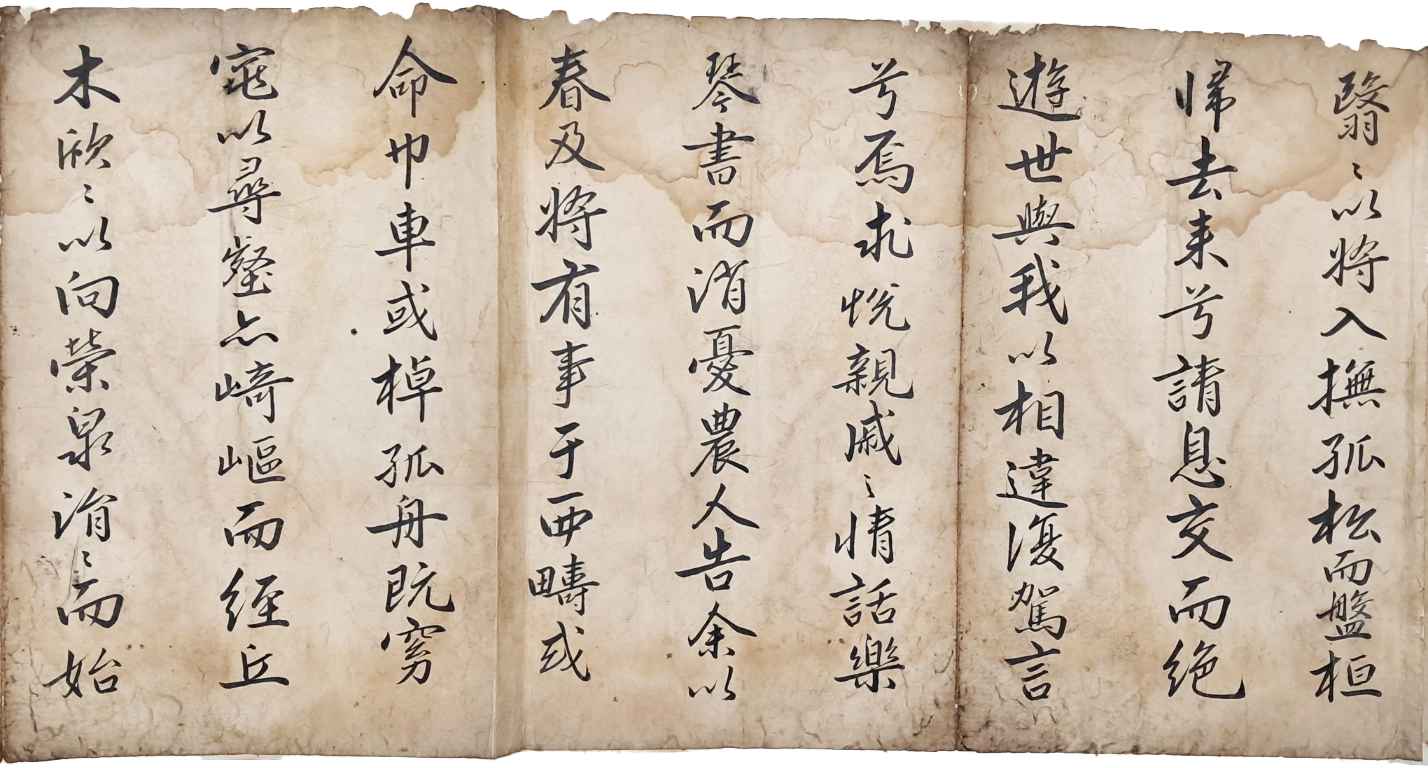 翳〻以將入撫孤松而盤桓
帰去来兮請息交而絶
遊世與我以相違復駕言
兮焉求悅親戚〻情話樂
琴書而消憂農人告余以
春及將有事于西疇或
命巾車或棹孤舟既窈
窕以尋壑亦崎嶇而經丘
木欣〻以向榮泉涓〻而始